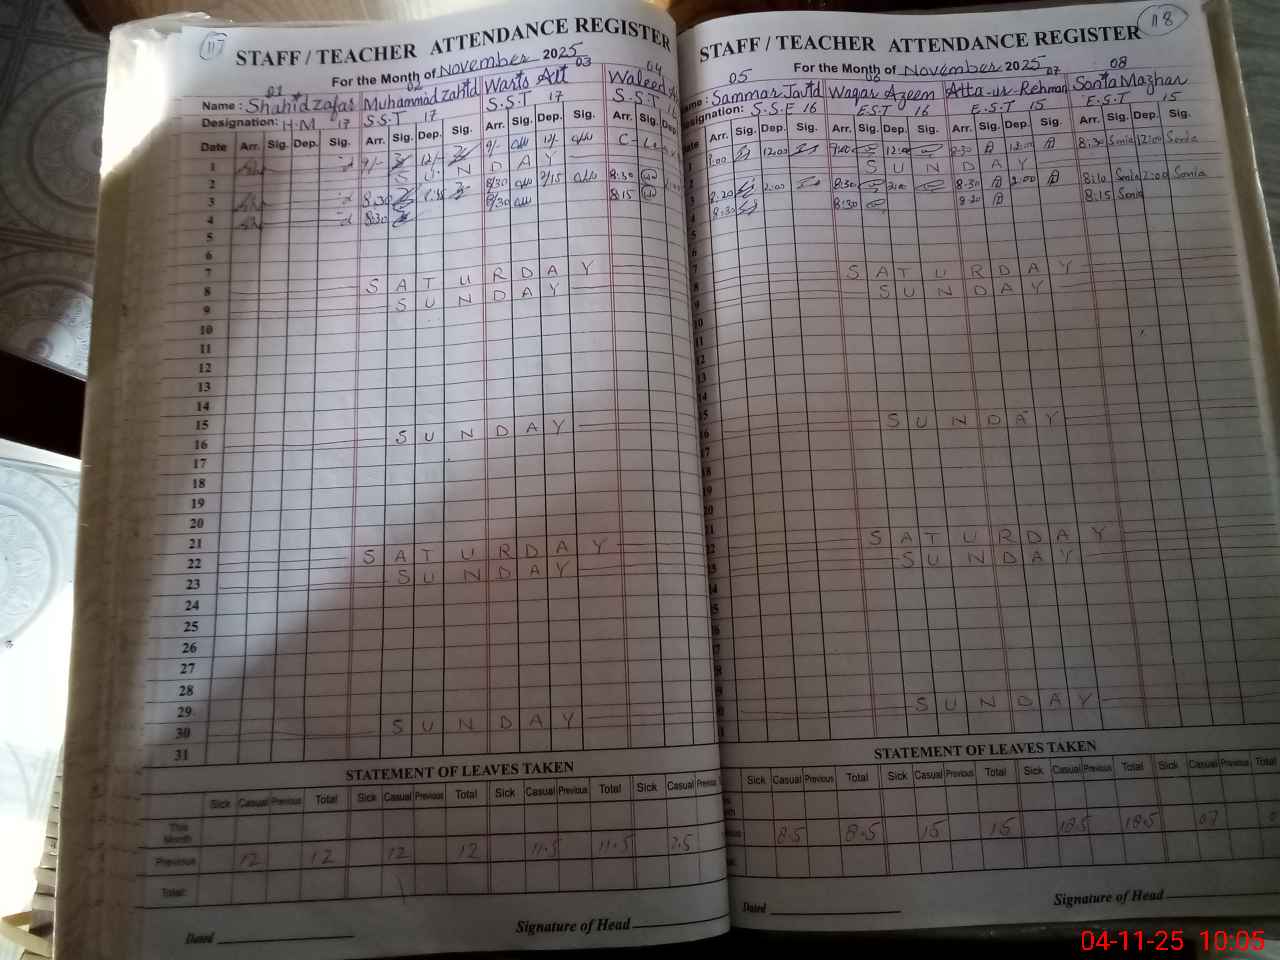 117
STAFF / TEACHER ATTENDANCE REGISTER
For the Month of November 2025
01 02 03 04
Name : Shahid Zafar Muhammad Zahid Waris Ali Waleed
Designation: H.M 17 S.S.T 17 S.S.T 17 S.S.T
Date Arr. Sig. Dep. Sig. Arr. Sig. Dep. Sig. Arr. Sig. Dep. Sig. Arr. Sig. Dep.
1 9/- 12/- 9/- 12/-
2 S U N D A Y
3 8:30 8/30 2/15 8:30
4 8:30 8/30 8:15
5
6
7
8 S A T U R D A Y
9 S U N D A Y
10
11
12
13
14
15
16 S U N D A Y
17
18
19
20
21
22 S A T U R D A Y
23 S U N D A Y
24
25
26
27
28
29
30 S U N D A Y
31
STATEMENT OF LEAVES TAKEN
Sick Casual Previous Total Sick Casual Previous Total Sick Casual Previous Total Sick Casual Previous
This Month
Previous 12 12 12 12 11.5 11.5 2.5
Total:
Dated Signature of Head
118
STAFF / TEACHER ATTENDANCE REGISTER
For the Month of November 2025
05 06 07 08
Name : Sammar Javid Waqar Azeem Atta-ur-Rehman Sonia Mazhar
Designation: S.S.E 16 E.S.T 16 E.S.T 15 E.S.T 15
Arr. Sig. Dep. Sig. Arr. Sig. Dep. Sig. Arr. Sig. Dep. Sig. Arr. Sig. Dep. Sig.
9:00 12:00 9:00 12:00 8:30 12:00 8:30 Sonia 12:00 Sonia
S U N D A Y
8:20 2:00 8:30 2:00 8:30 2:00 8:10 Sonia 2:00 Sonia
8:30 8:30 8:20 8:15 Sonia
S A T U R D A Y
S U N D A Y
S U N D A Y
S A T U R D A Y
S U N D A Y
S U N D A Y
STATEMENT OF LEAVES TAKEN
Sick Casual Previous Total Sick Casual Previous Total Sick Casual Previous Total Sick Casual Previous Total
8.5 8.5 15 15 18.5 18.5 07
Dated Signature of Head
04-11-25 10:05